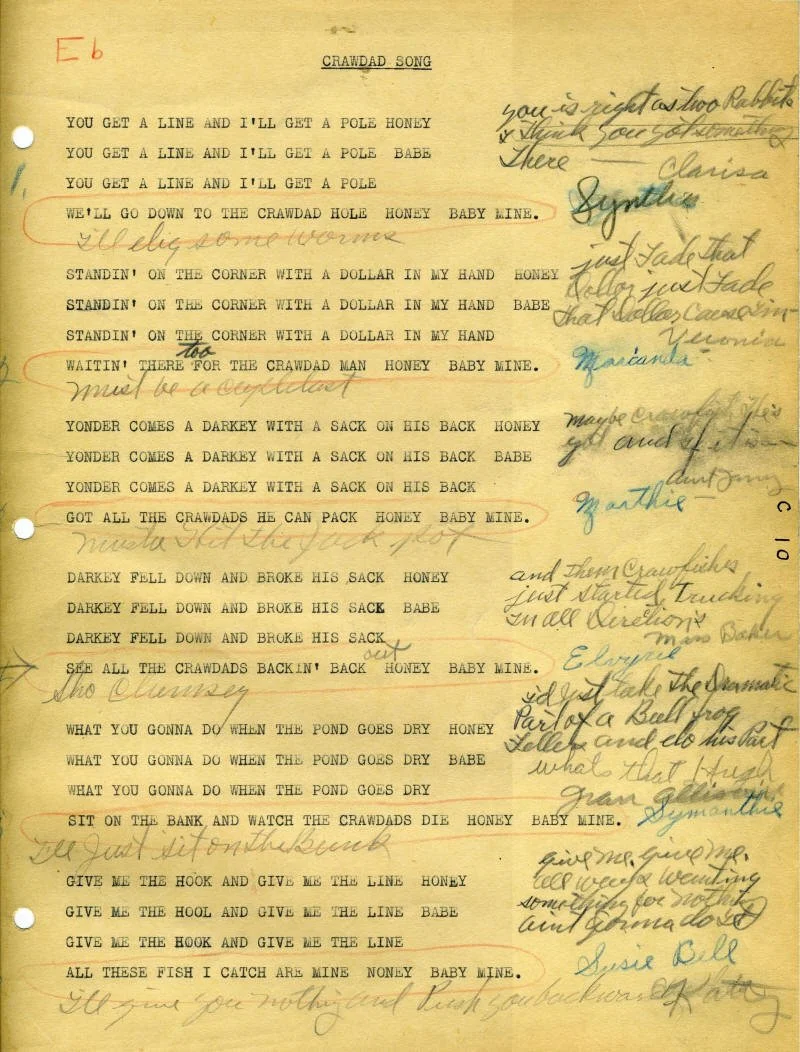 Eb
CRAWDAD SONG
YOU GET A LINE AND I'LL GET A POLE HONEY
YOU GET A LINE AND I'LL GET A POLE BABE
YOU GET A LINE AND I'LL GET A POLE
WE'LL GO DOWN TO THE CRAWDAD HOLE HONEY BABY MINE.
I'll dig some worms
you is right as two Rabbits
I think you got something
There —
Clarisa
Synthia
1.
STANDIN' ON THE CORNER WITH A DOLLAR IN MY HAND HONEY
STANDIN' ON THE CORNER WITH A DOLLAR IN MY HAND BABE
STANDIN' ON THE CORNER WITH A DOLLAR IN MY HAND
too
WAITIN' THERE FOR THE CRAWDAD MAN HONEY BABY MINE.
must be a
just Fade that
Dollar just Fade
that Dollar Cause I'm
YONDER COMES A DARKEY WITH A SACK ON HIS BACK HONEY
YONDER COMES A DARKEY WITH A SACK ON HIS BACK BABE
YONDER COMES A DARKEY WITH A SACK ON HIS BACK
GOT ALL THE CRAWDADS HE CAN PACK HONEY BABY MINE.
Musta Hit the Jack pot
maybe
and if it is —
Marthie
C 10
DARKEY FELL DOWN AND BROKE HIS SACK HONEY
DARKEY FELL DOWN AND BROKE HIS SACK BABE
DARKEY FELL DOWN AND BROKE HIS SACK
out
SEE ALL THE CRAWDADS BACKIN' BACK HONEY BABY MINE.
Sho Clumsey
and them Crawfishes
just started Trucking
in all Direction's
Miss Baker
WHAT YOU GONNA DO WHEN THE POND GOES DRY HONEY
WHAT YOU GONNA DO WHEN THE POND GOES DRY BABE
WHAT YOU GONNA DO WHEN THE POND GOES DRY
SIT ON THE BANK AND WATCH THE CRAWDADS DIE HONEY BABY MINE.
I'll Just sit on the Bunk
I'd Just take the Dramatic
Part of a Bull frog
Feller and do his Part
whats that Hugh
Symanthie
GIVE ME THE HOOK AND GIVE ME THE LINE HONEY
GIVE ME THE HOOL AND GIVE ME THE LINE BABE
GIVE ME THE HOOK AND GIVE ME THE LINE
ALL THESE FISH I CATCH ARE MINE NONEY BABY MINE.
I'll give you nothing and Push you backwards
give me, give me.
all ways wanting
something for nothing
aint gonna do it
Susie Bell